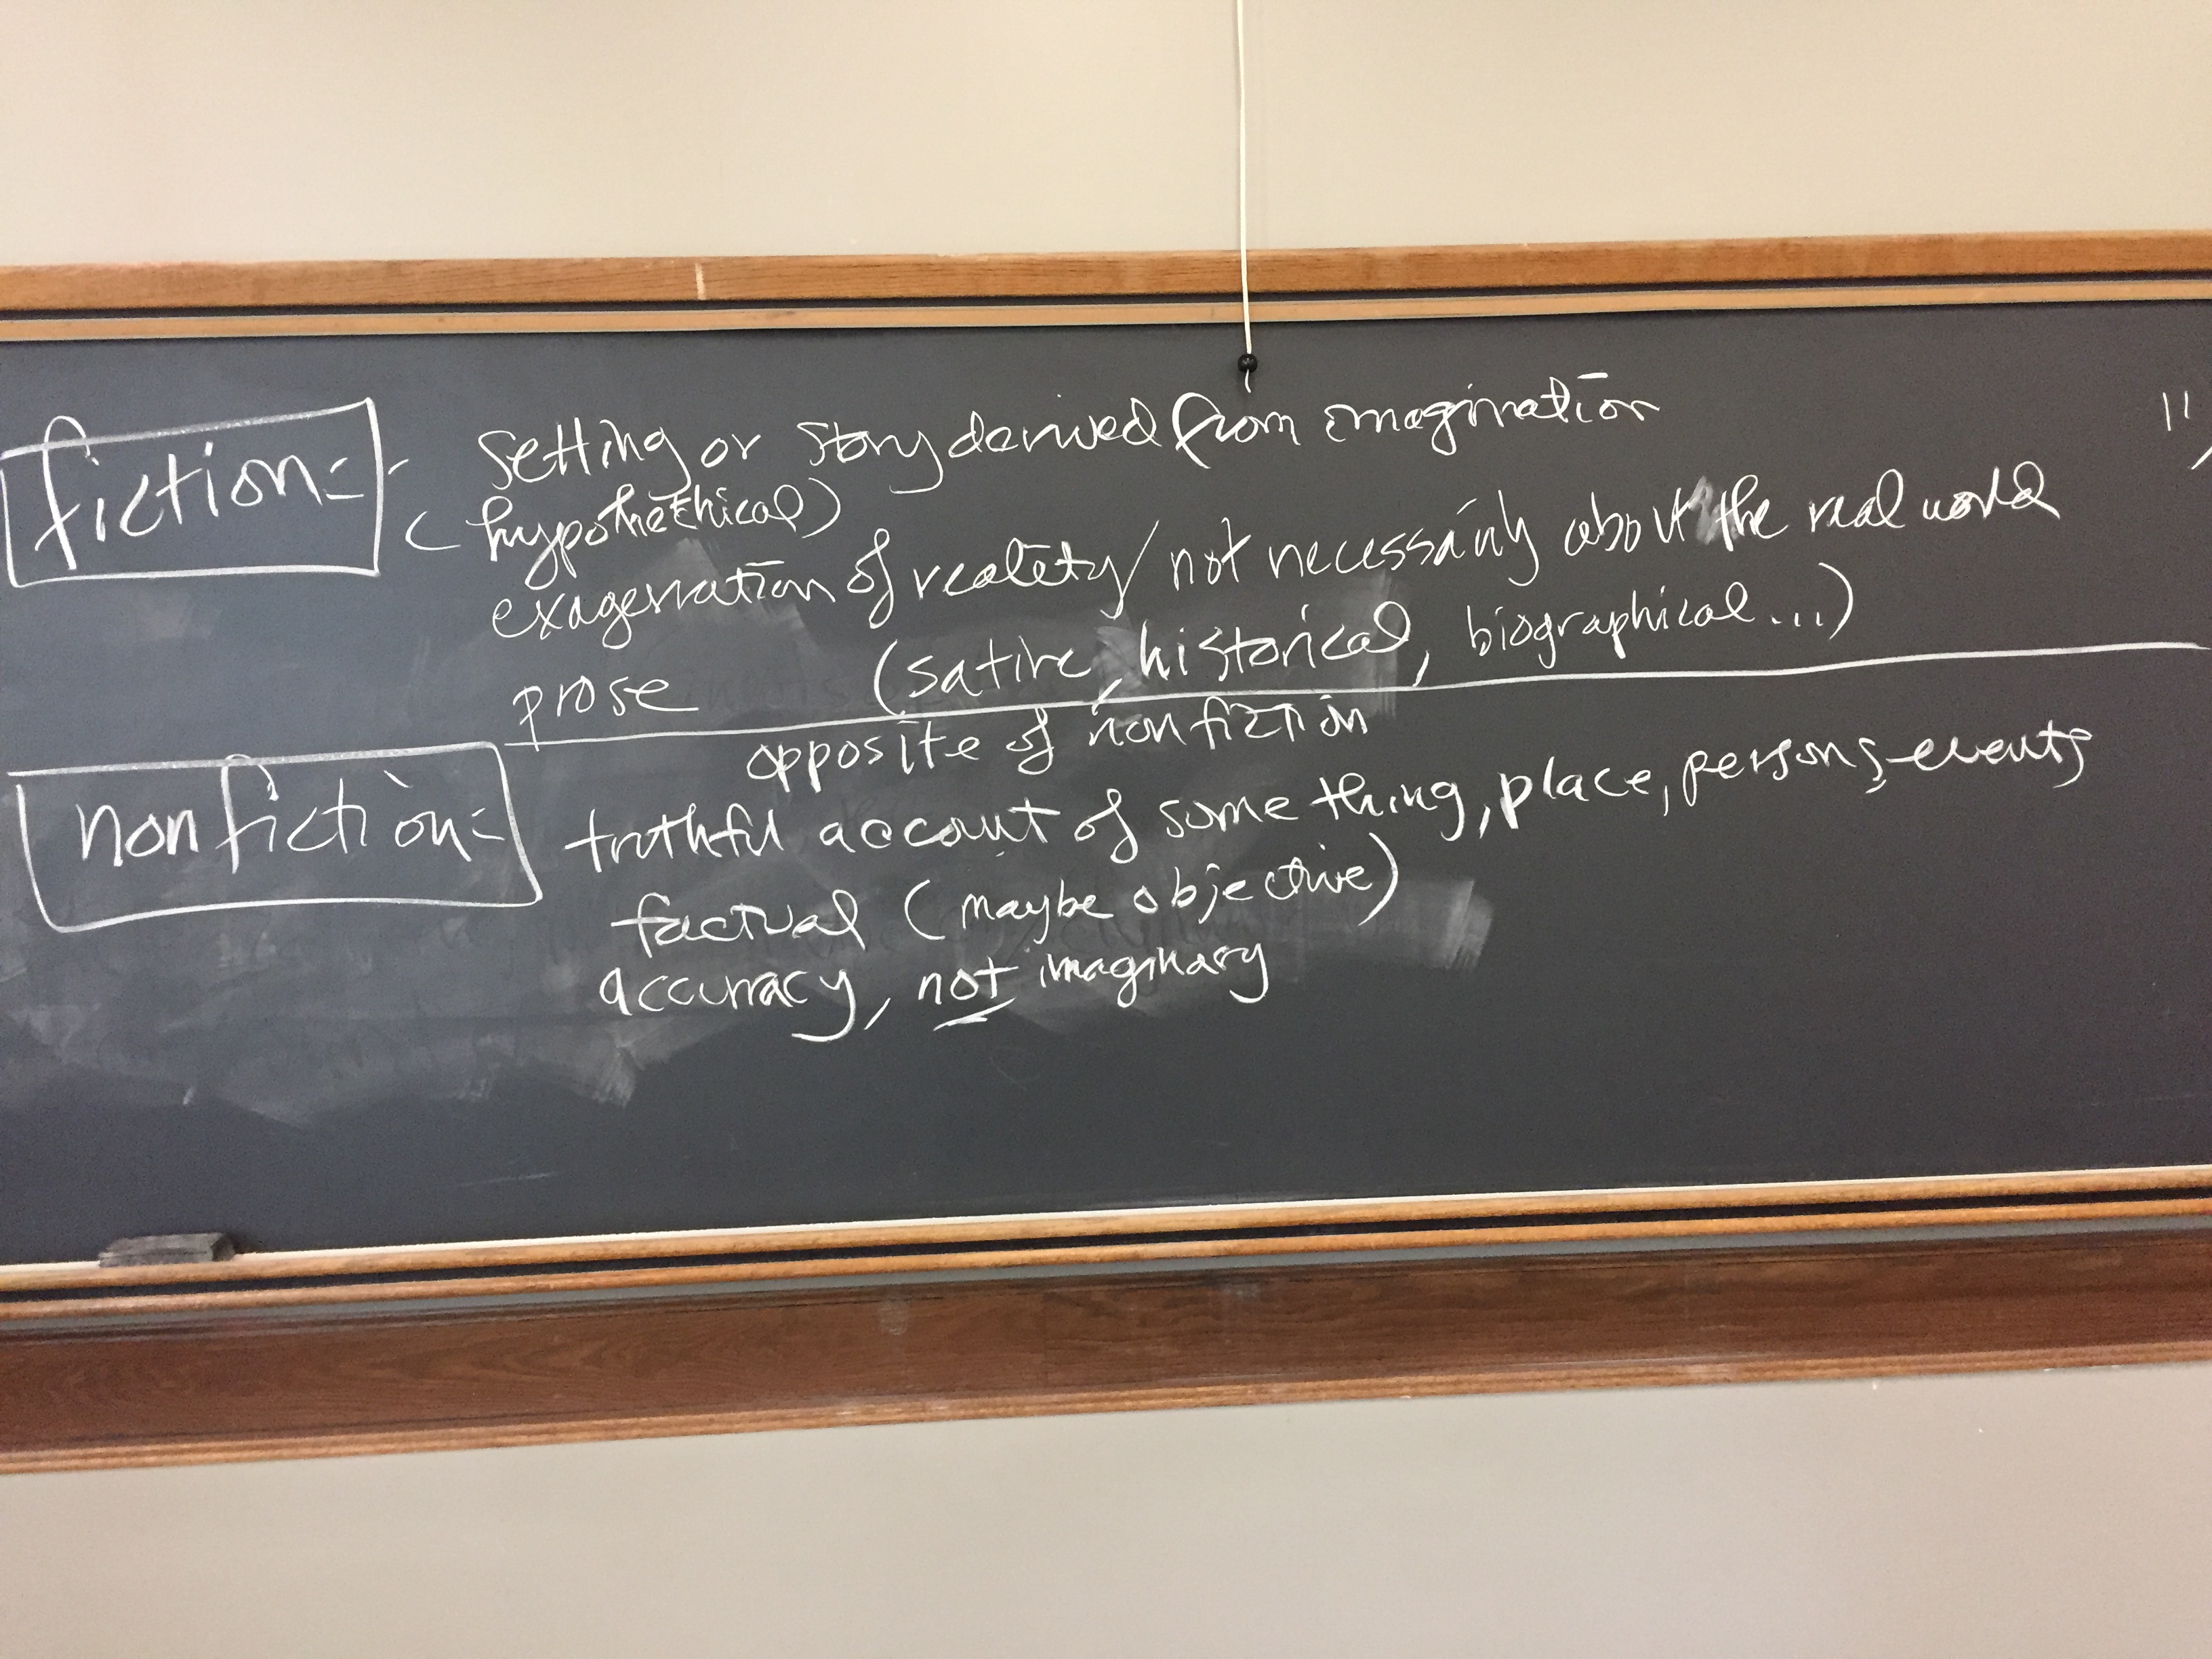 fiction= - setting or story derived from imagination
(hypothethical)
exagerration of reality/not necessarily about the real world
prose (satire, historical, biographical...)
opposite of nonfiction
nonfiction= truthful account of some thing, place, persons, events
factual (maybe objective)
accuracy, not imaginary